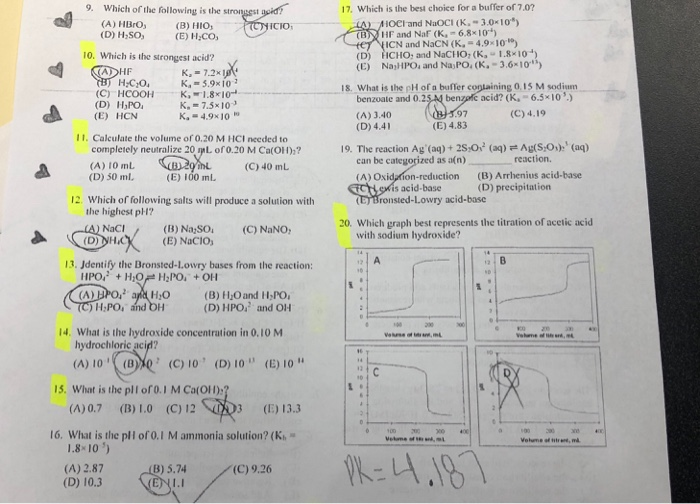 9. Which of the following is the strongest acid?
(A) HBrO₃ (B) HIO₃ (C) HClO₃
(D) H₂SO₃ (E) H₂CO₃
10. Which is the strongest acid?
(A) HF Kₐ = 7.2×10⁻⁴
(B) H₂C₂O₄ Kₐ = 5.9×10⁻²
(C) HCOOH Kₐ = 1.8×10⁻⁴
(D) H₃PO₄ Kₐ = 7.5×10⁻³
(E) HCN Kₐ = 4.9×10⁻¹⁰
11. Calculate the volume of 0.20 M HCl needed to
completely neutralize 20 mL of 0.20 M Ca(OH)₂?
(A) 10 mL (B) 20 mL (C) 40 mL
(D) 50 mL (E) 100 mL
12. Which of following salts will produce a solution with
the highest pH?
(A) NaCl (B) Na₂SO₄ (C) NaNO₂
(D) NH₄Cl (E) NaClO₃
13. Identify the Bronsted-Lowry bases from the reaction:
HPO₄²⁻ + H₂O ⇌ H₂PO₄⁻ + OH⁻
(A) HPO₄²⁻ and H₂O (B) H₂O and H₂PO₄⁻
(C) H₂PO₄⁻ and OH⁻ (D) HPO₄²⁻ and OH⁻
14. What is the hydroxide concentration in 0.10 M
hydrochloric acid?
(A) 10⁻¹ (B) 10⁻² (C) 10⁻⁷ (D) 10⁻¹³ (E) 10⁻¹⁴
15. What is the pH of 0.1 M Ca(OH)₂?
(A) 0.7 (B) 1.0 (C) 12 (D) 13 (E) 13.3
16. What is the pH of 0.1 M ammonia solution? (K_b =
1.8×10⁻⁵)
(A) 2.87 (B) 5.74 (C) 9.26
(D) 10.3 (E) 11.1
17. Which is the best choice for a buffer of 7.0?
(A) HOCl and NaOCl (Kₐ = 3.0×10⁻⁸)
(B) HF and NaF (Kₐ = 6.8×10⁻⁴)
(C) HCN and NaCN (Kₐ = 4.9×10⁻¹⁰)
(D) HCHO₂ and NaCHO₂ (Kₐ = 1.8×10⁻⁴)
(E) Na₂HPO₄ and Na₃PO₄ (Kₐ = 3.6×10⁻¹³)
18. What is the pH of a buffer containing 0.15 M sodium
benzoate and 0.25 M benzoic acid? (Kₐ = 6.5×10⁻⁵.)
(A) 3.40 (B) 3.97 (C) 4.19
(D) 4.41 (E) 4.83
19. The reaction Ag⁺(aq) + 2S₂O₃²⁻ (aq) ⇌ Ag(S₂O₃)₂³⁻ (aq)
can be categorized as a(n) ______ reaction.
(A) Oxidation-reduction (B) Arrhenius acid-base
(C) Lewis acid-base (D) precipitation
(E) Bronsted-Lowry acid-base
20. Which graph best represents the titration of acetic acid
with sodium hydroxide?
A
B
C
D
PK=4.187